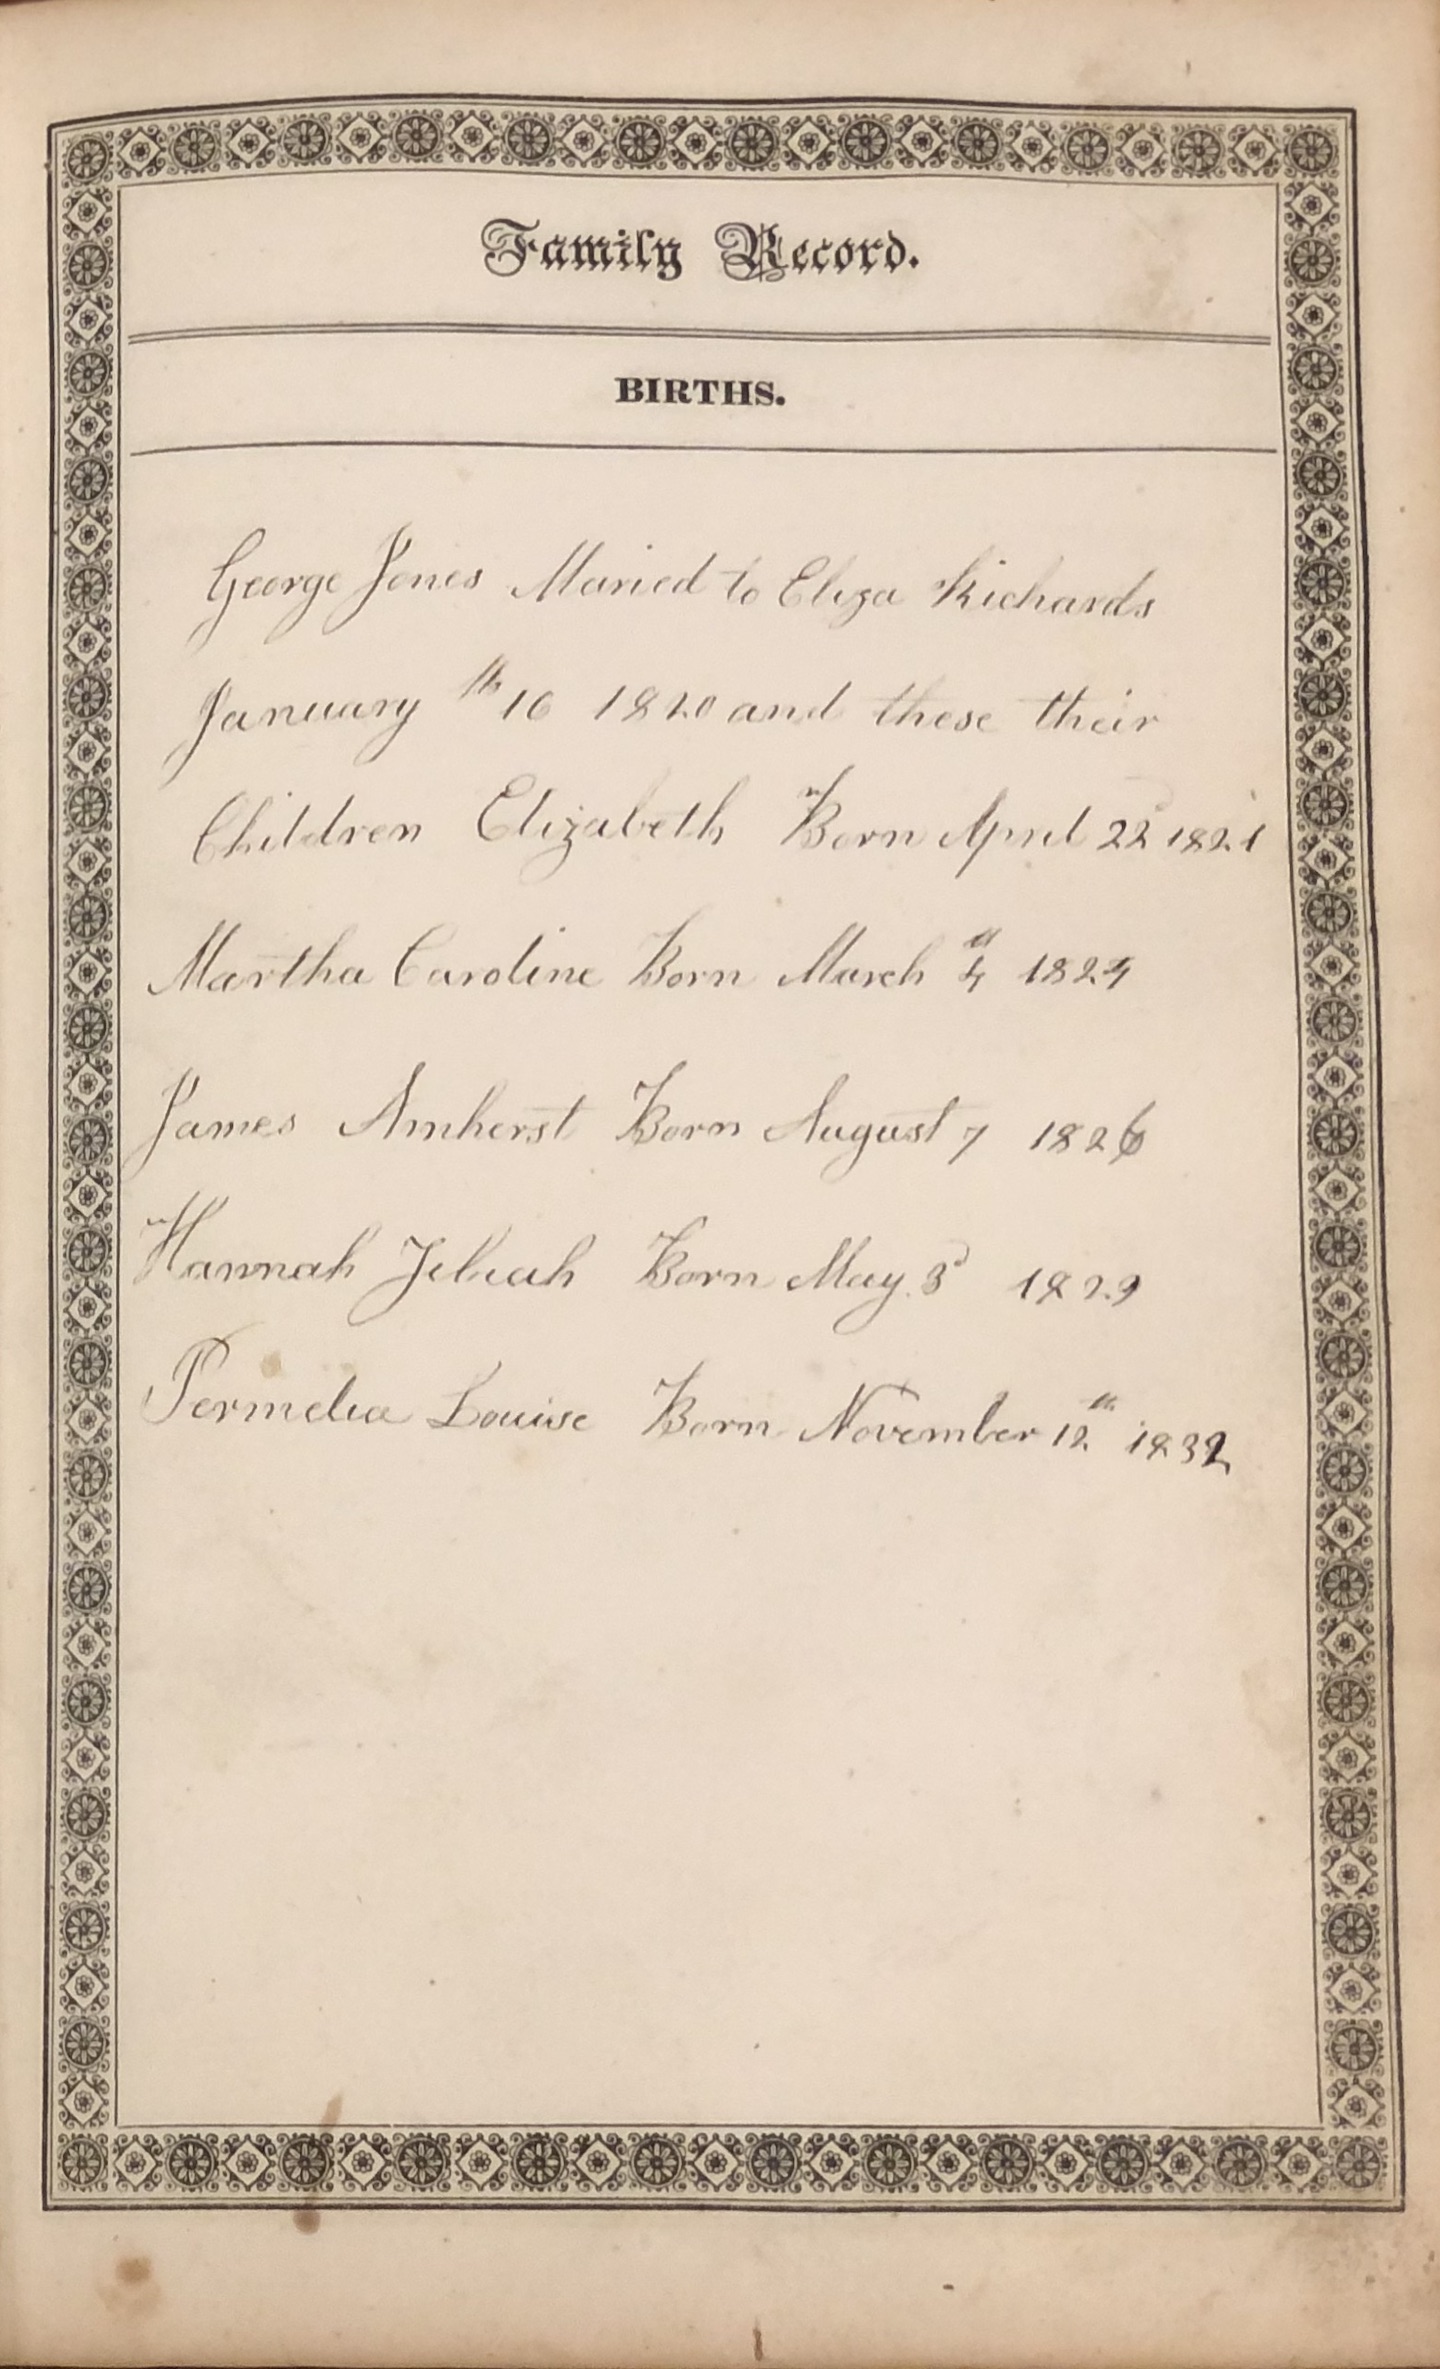 Family Record.
BIRTHS.
George Jones Maried to Eliza Richards
January th 16 1820 and these their
Children Elizabeth Born April 22d 1821
Martha Caroline Born March 4 1824
James Amherst Born August 7 1826
Hannah Born May 3d 1829
Permelia Louise Born November 12th 1832